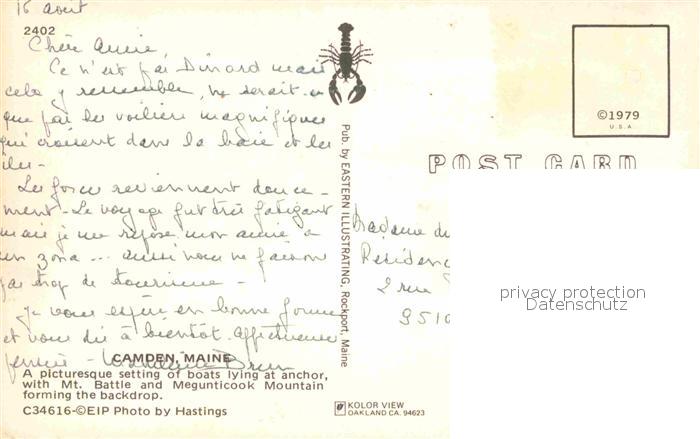 16 août
2402
Chère Annie,
Ce n'est pas Dinard mais
cela y ressemble, ne serait-ce
que par les voiliers magnifiques
qui croisent dans la baie et les
îles-
Les forces reviennent douce-
ment - Le voyage fut très fatigant
mais je me repose, mon amie a
un zona ... aussi nous ne faisons
pas trop de tourisme -
Je vous espère en bonne forme
et vous dis à bientôt. Affectueuse
pensée -
CAMDEN, MAINE
A picturesque setting of boats lying at anchor,
with Mt. Battle and Megunticook Mountain
forming the backdrop.
C34616-©EIP Photo by Hastings
Pub. by EASTERN ILLUSTRATING, Rockport, Maine
©1979
U.S.A
POST CARD
Madame du
Résidence
2 rue
9510
privacy protection
Datenschutz
KOLOR VIEW
OAKLAND CA. 94623